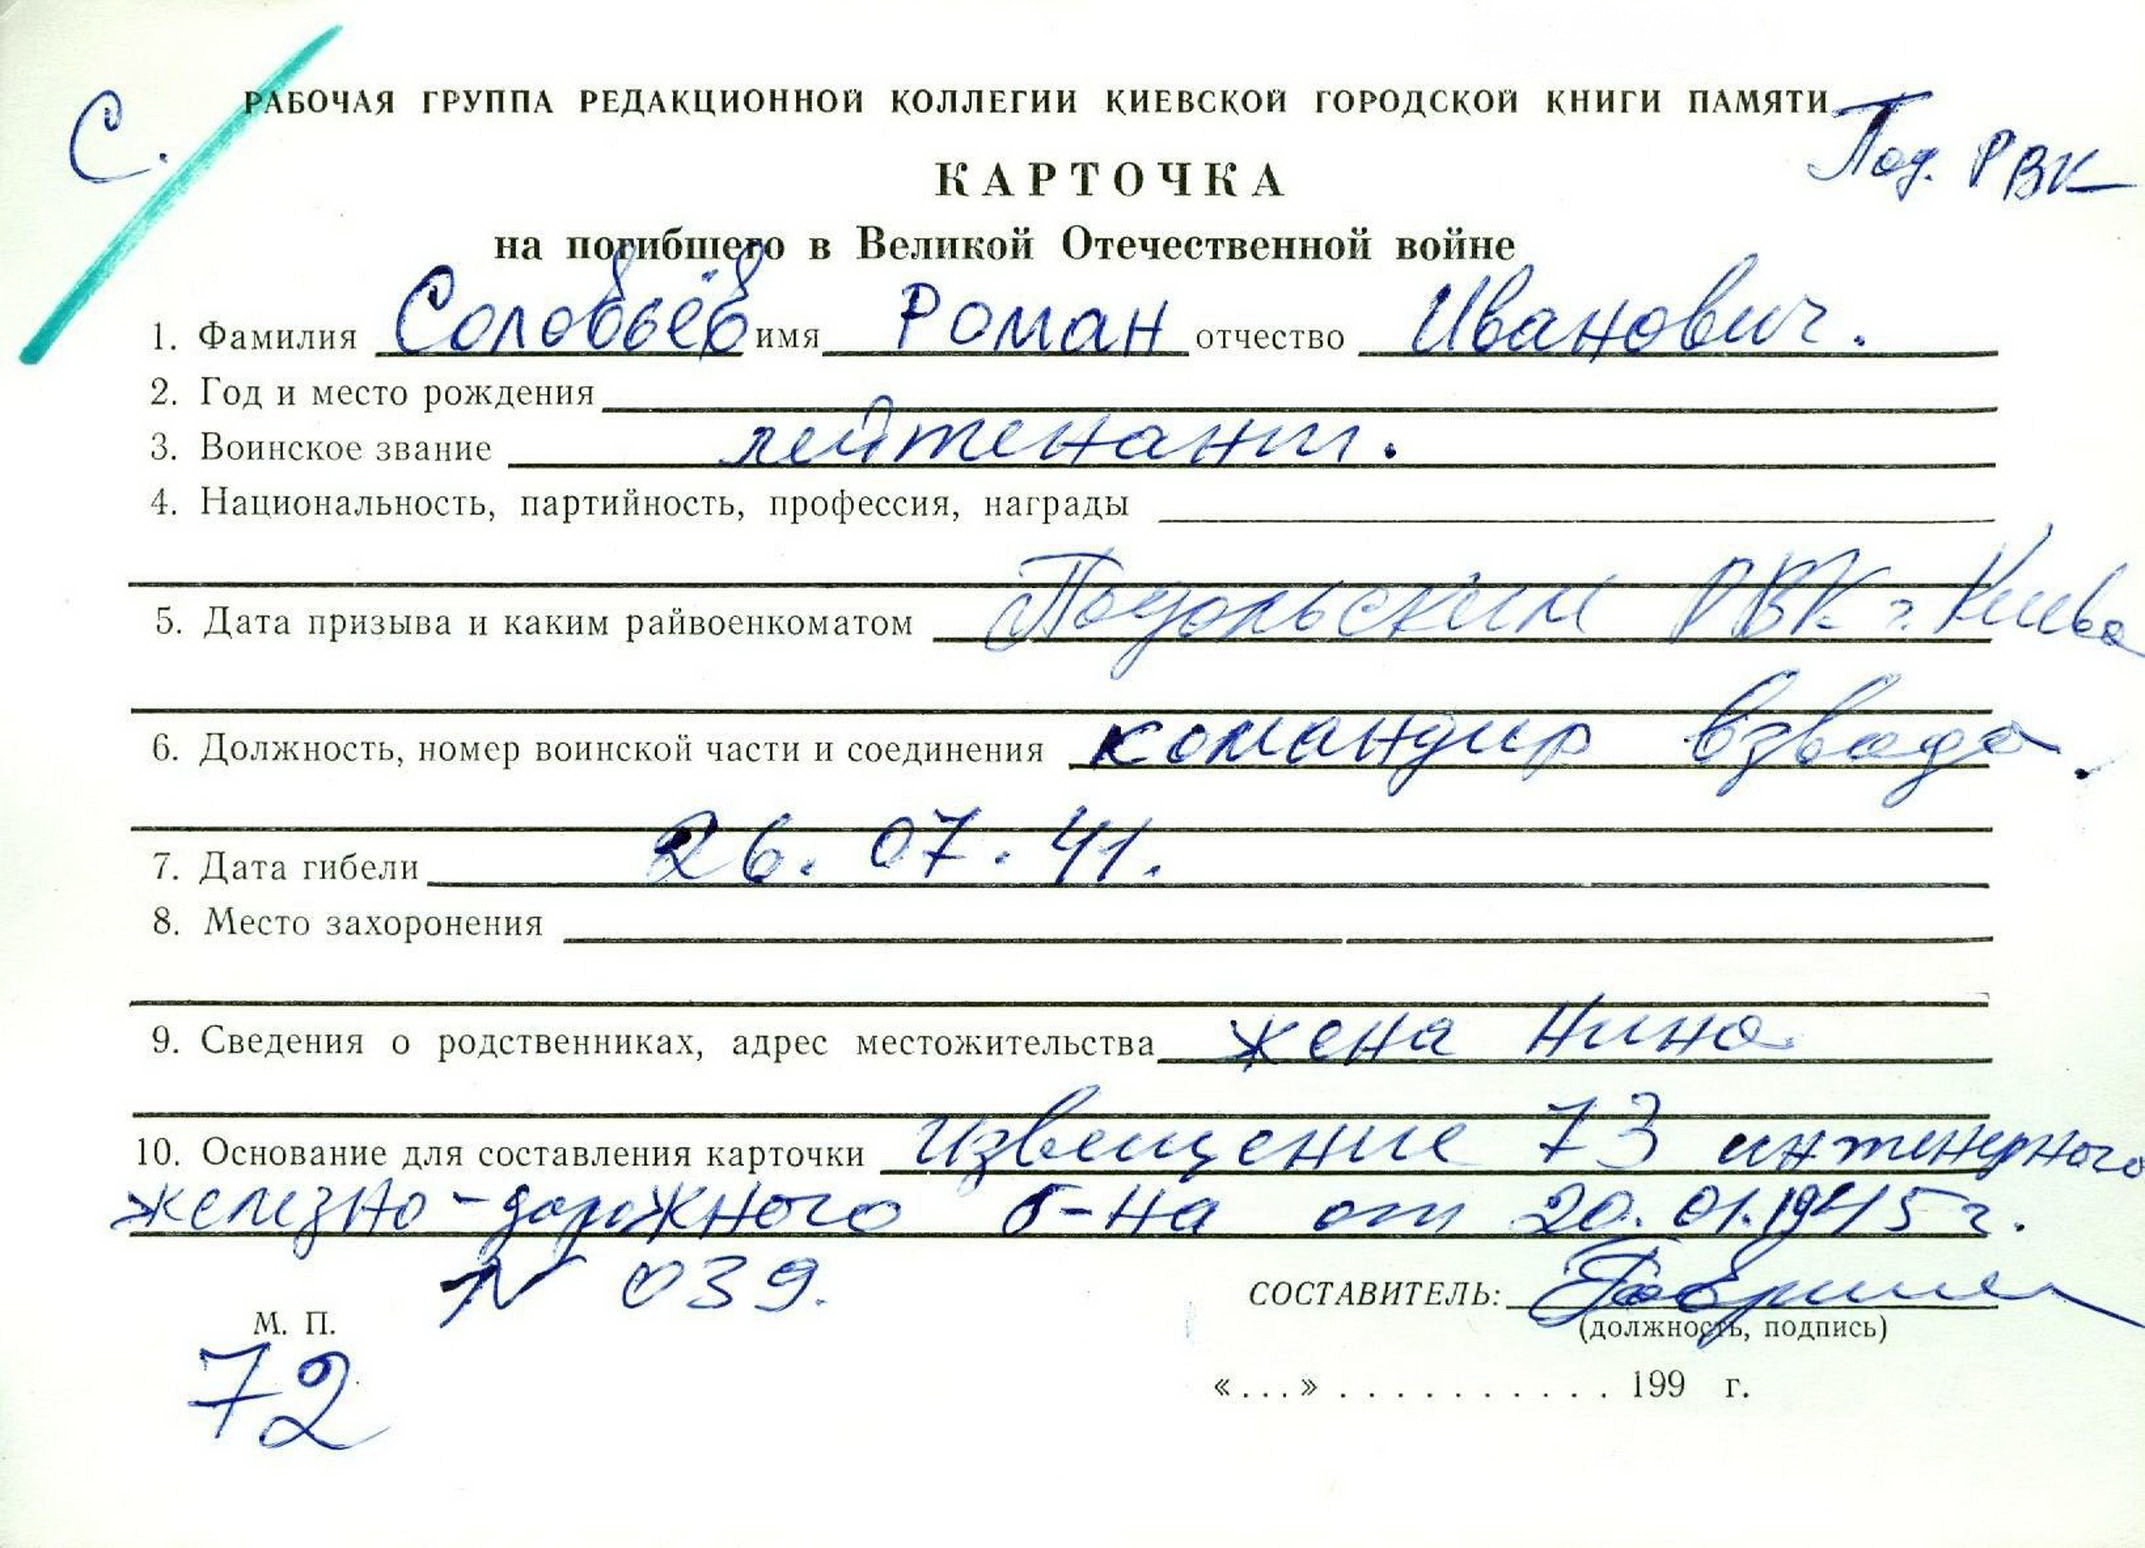 С. РАБОЧАЯ ГРУППА РЕДАКЦИОННОЙ КОЛЛЕГИИ КИЕВСКОЙ ГОРОДСКОЙ КНИГИ ПАМЯТИ
Под. РВК
КАРТОЧКА
на погибшего в Великой Отечественной войне
1. Фамилия Соловьёв имя Роман отчество Иванович.
2. Год и место рождения
3. Воинское звание лейтенант.
4. Национальность, партийность, профессия, награды
5. Дата призыва и каким райвоенкоматом Подольским РВК г. Киева
6. Должность, номер воинской части и соединения командир взвода.
7. Дата гибели 26. 07. 41.
8. Место захоронения
9. Сведения о родственниках, адрес местожительства жена Нина
10. Основание для составления карточки извещение 73 инженерного
железно-дорожного б-на от 20.01.1945 г.
N 039.
СОСТАВИТЕЛЬ:
М. П.
(должность, подпись)
72
«...» . . . . . . . . . . . 199 г.